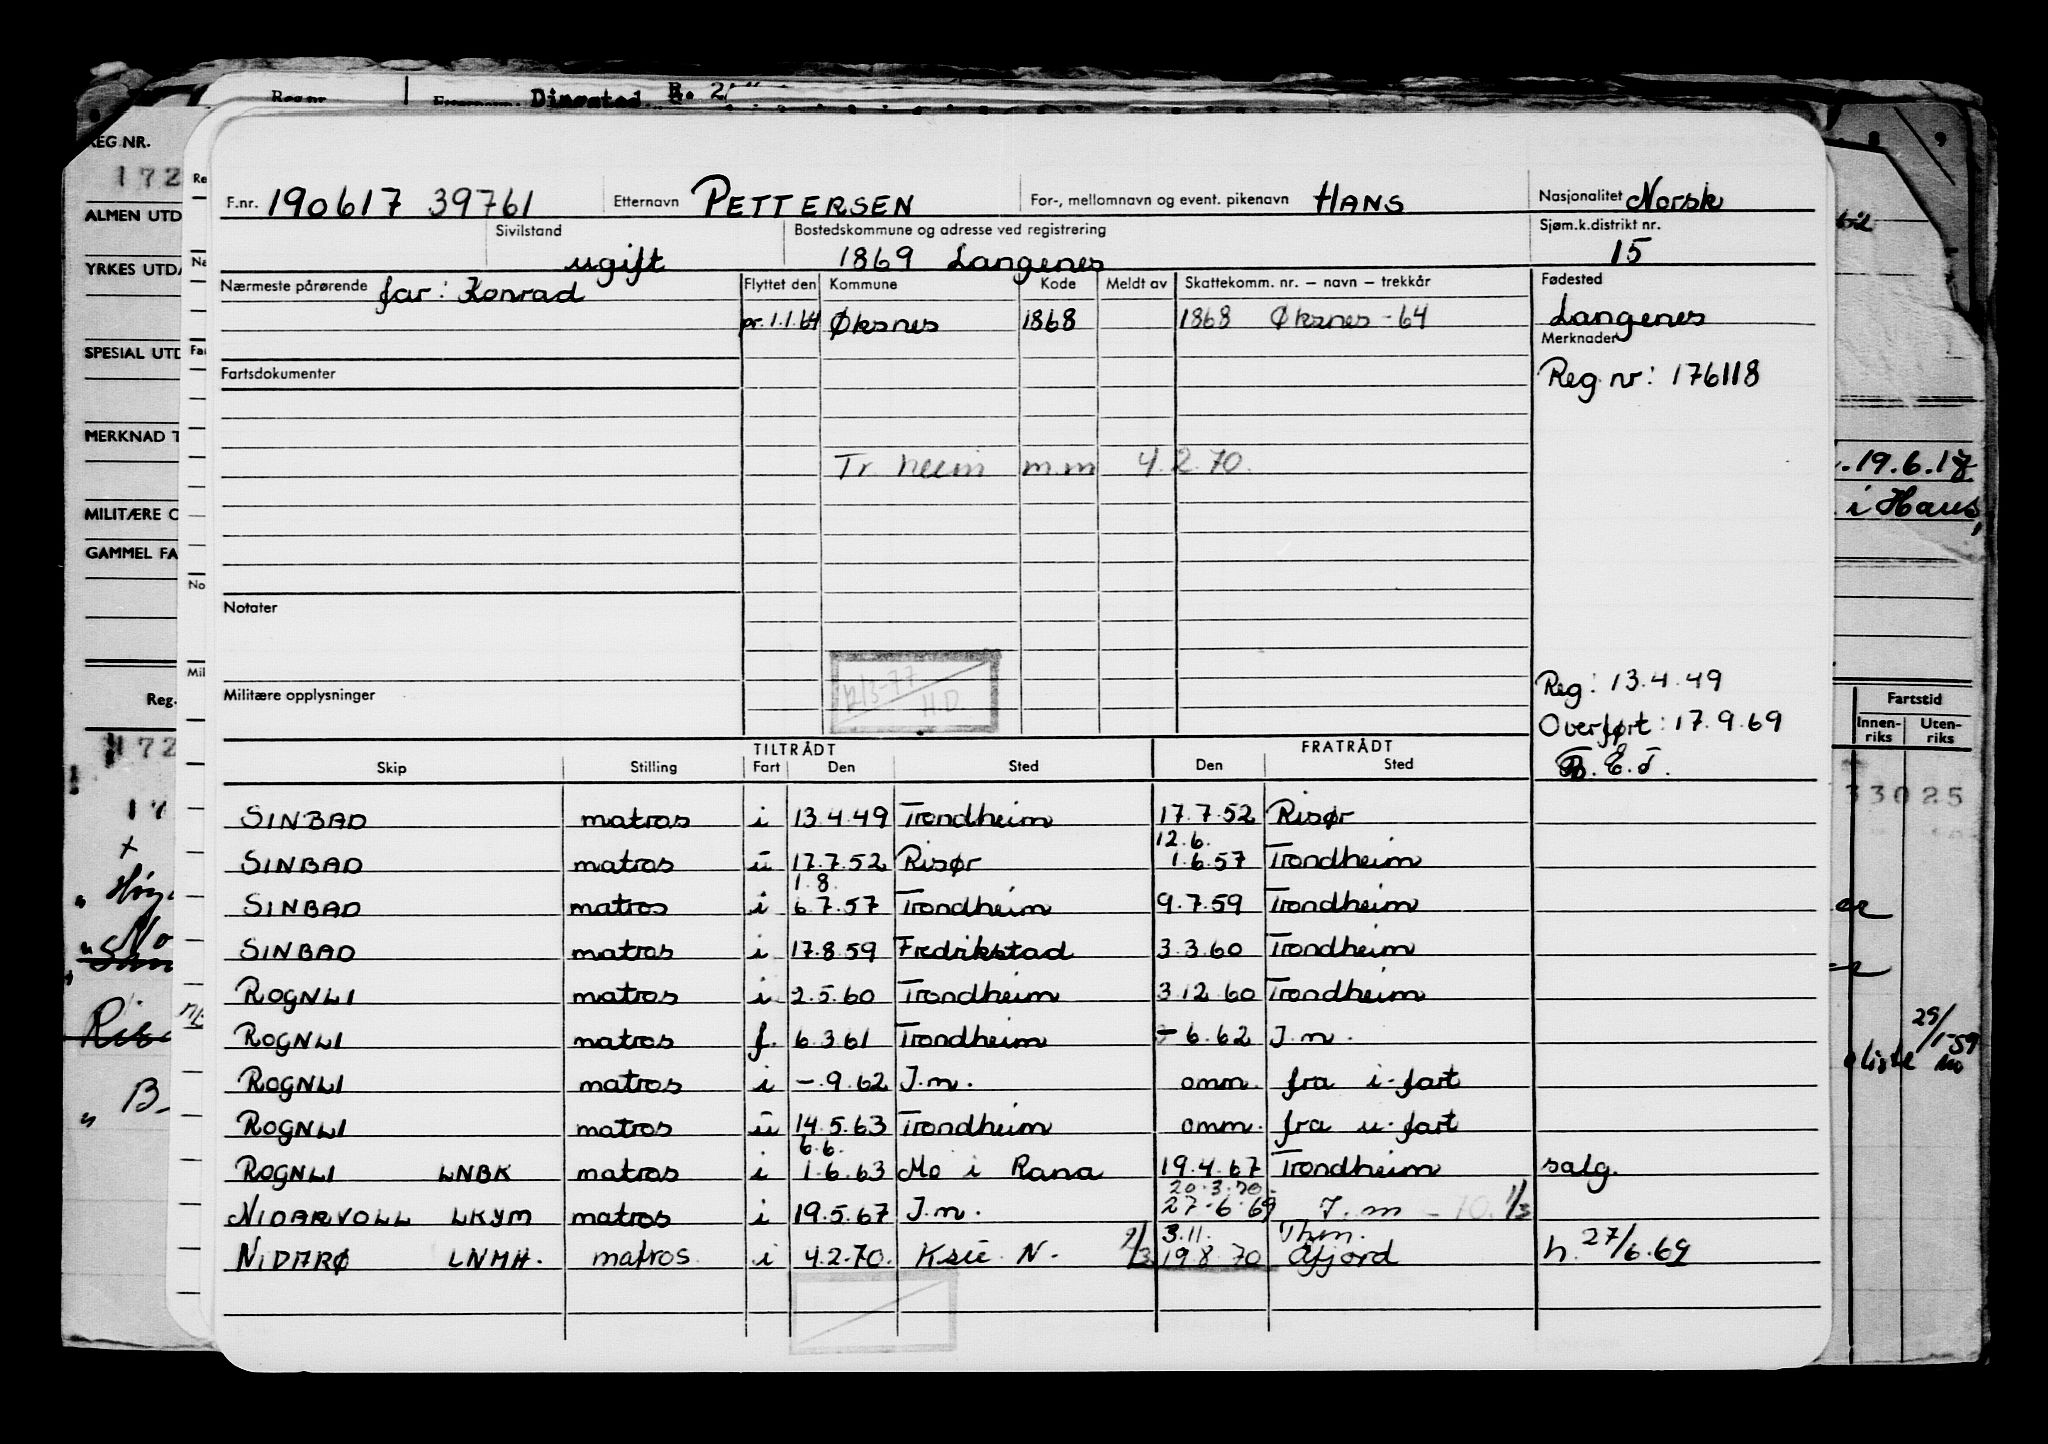 Reg.nr.
REG NR.
172
ALMEN UTD
YRKES UTDA
SPESIAL UTD
MERKNAD T
MILITÆRE O
GAMMEL FA
Reg.
F.nr. 190617 39761 Etternavn PETTERSEN For-, mellomnavn og event. pikenavn HANS Nasjonalitet Norsk
Sivilstand ugift Bostedskommune og adresse ved registrering 1869 Langenes Sjøm.k.distrikt nr. 15
Nærmeste pårørende far: Konrad Flyttet den Kommune Kode Meldt av Skattekomm. nr. – navn – trekkår Fødested
pr. 1.1.64 Øksnes 1868 1868 Øksnes - 64 Langenes
Merknader
Fartsdokumenter Reg. nr: 176118
Tr.heim m.m 4.2.70.
19.6.17
i Haus,
Notater
12/3-77
H.D
Militære opplysninger Reg: 13.4.49
Overført: 17.9.69
B.E.T.
Fartstid
Innen-riks Uten-riks
33025
TILTRÅDT FRATRÅDT
Skip Stilling Fart Den Sted Den Sted
SINBAD matros i 13.4.49 Trondheim 17.7.52 Risør
12.6.
SINBAD matros u 17.7.52 Risør 1.6.57 Trondheim
1.8.
SINBAD matros i 6.7.57 Trondheim 9.7.59 Trondheim
SINBAD matros i 17.8.59 Fredrikstad 3.3.60 Trondheim
ROGNLI matros i 2.5.60 Trondheim 3.12.60 Trondheim
ROGNLI matros f. 6.3.61 Trondheim - 6.62 I.n.
ROGNLI matros i -.9.62 I.n. omm. fra i-fart
ROGNLI matros u 14.5.63 Trondheim omm. fra u-fart
6.6.
ROGNLI LNBK matros i 1.6.63 Mo i Rana 19.4.67 Trondheim salg.
20.3.70.
NIDARVOLL LKYM matros i 19.5.67 I.n. 27.6.69 I.m - 70. 1/3
3.11. Thm.
NIDARØ LNMH. matros i 4.2.70. Ksu N. 2/3 19.8.70 Åfjord h. 27/6.69